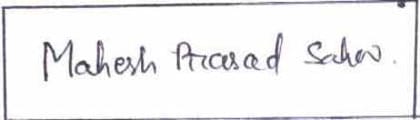 Mahesh Prasad Sahu.